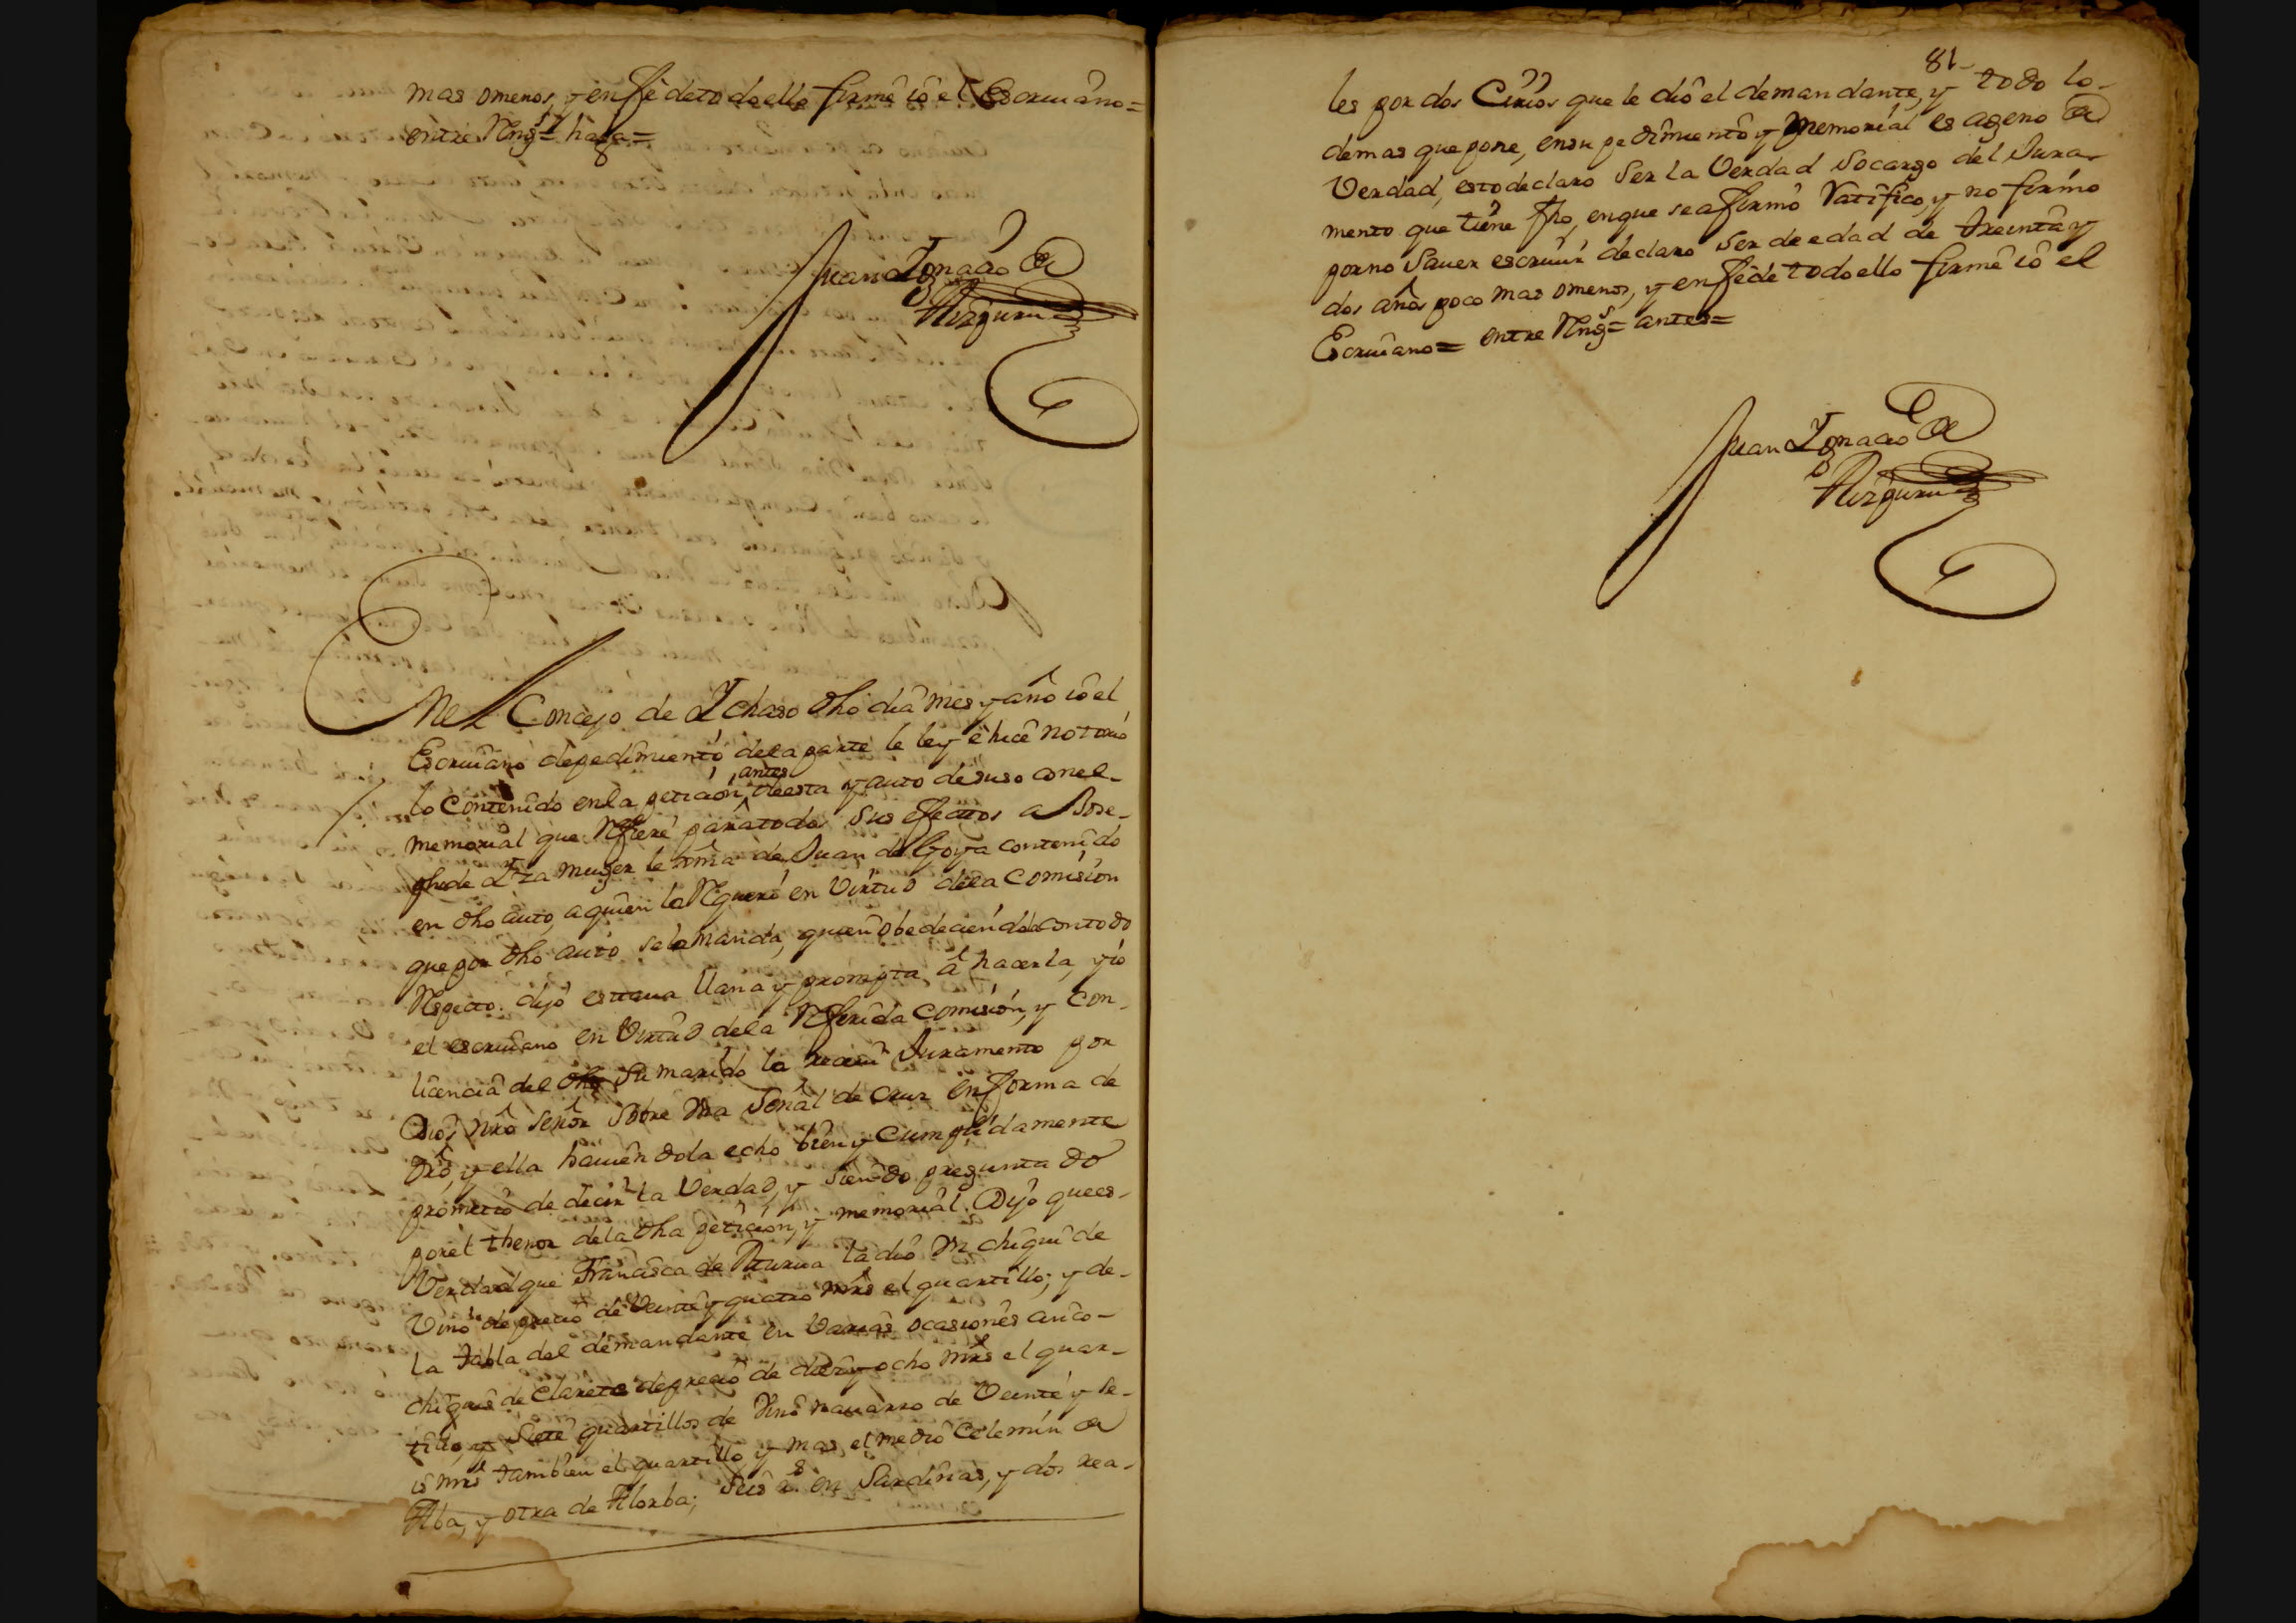 mas omenos, y enfê detodoello firmê iô el Escriuâno=
entre Rng.s= haga=
Juan Ygnacio de
Aizpuru
En el Concejo de Ychaso dho dia mes y año iô el
Escriuano depedimiento dela parte le ley ê hice notorio
lo contenido enla peticion, antes deesta y auto desuso conel-
memorial que Refiere paratodos sus efectos a Jose-
pha de Yza muger lexma de Juan de Goya contenido
en dho auto, aquien la Requeri en Virtud dela comision
que por dho auto selemanda, quien obedeciendola contodo
Respecto dijô estaua llana y prompta â hacerla, y iô
el escriuano en Virtud dela Referida comision, y con-
licencia del dho Su marido la receui Juramento por
Dios nrô señor Sobre vna Señal de Cruz enforma de
drô, y ella hauiendola echo bien y cumplidamente
prometiô de decir la Verdad, y Siendo preguntado
porel thenor dela dha peticion, y memorial. Dijo quees-
Verdad que Francisca de Aturua ladiô vn chiqui de
Vino de precio de Veinte y quatro mrs el quartillo; y de-
la tabla del demandante en Varias ocasiones cinco-
chiquis de Clarete deprecio de diez y ocho mrs el quar-
tillo, y Siete quartillos de Vino nauarro de Veinte y se-
is mrs tambien el quartillo, y mas, el medio Celemin de
Aba, y otra de Alorba; Seis r.s en Sardinas, y dos rea-
81-
les por dos Cirios que le diô el demandante, y todo lo-
demas que pone, ensu pedimiento y memorial es ageno de
Verdad, estodeclaro Ser la Verdad Socargo del Jura-
mento que tiene fho, enque seafirmô Ratifico, y no firmo
porno Sauer escriuir declaro Ser deedad de treinta y
dos años poco mas omenos, y enfêde todoello firmê iô el
Escriuano= entre Rng.s= antes=
Juan Ygnacio de
Aizpuru